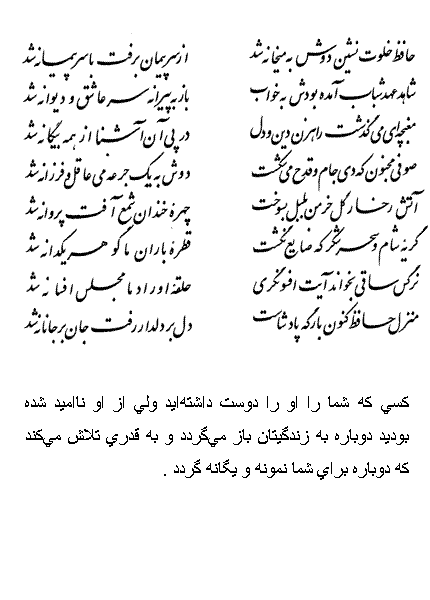 حافظ خلوت نشین دوش به میخانه شد از سر پیمان برفت با سر پیمانه شد
شاهد عهد شباب آمده بودش به خواب باز به پیرانه سر عاشق و دیوانه شد
مغبچه‌ای می گذشت راهزن دین و دل در پی آن آشنا از همه بیگانه شد
صوفی مجنون که دی جام و قدح می‌شکست دوش به یک جرعه می عاقل و فرزانه شد
آتش رخسار گل خرمن بلبل بسوخت چهرهٔ خندان شمع آفت پروانه شد
گریهٔ شام و سحر شکر که ضایع نگشت قطرهٔ باران ما گوهر یکدانه شد
نرگس ساقی بخواند آیت افسونگری حلقهٔ اوراد ما مجلس افسانه شد
منزل حافظ کنون بارگه پادشاست دل بر دلدار رفت جان بر جانانه شد
كسي كه شما را او را دوست داشته‌ايد ولي از او نااميد شده
بوديد دوباره به زندگيتان باز مي‌گردد و به قدري تلاش مي‌كند
كه دوباره براي شما نمونه و يگانه گردد .